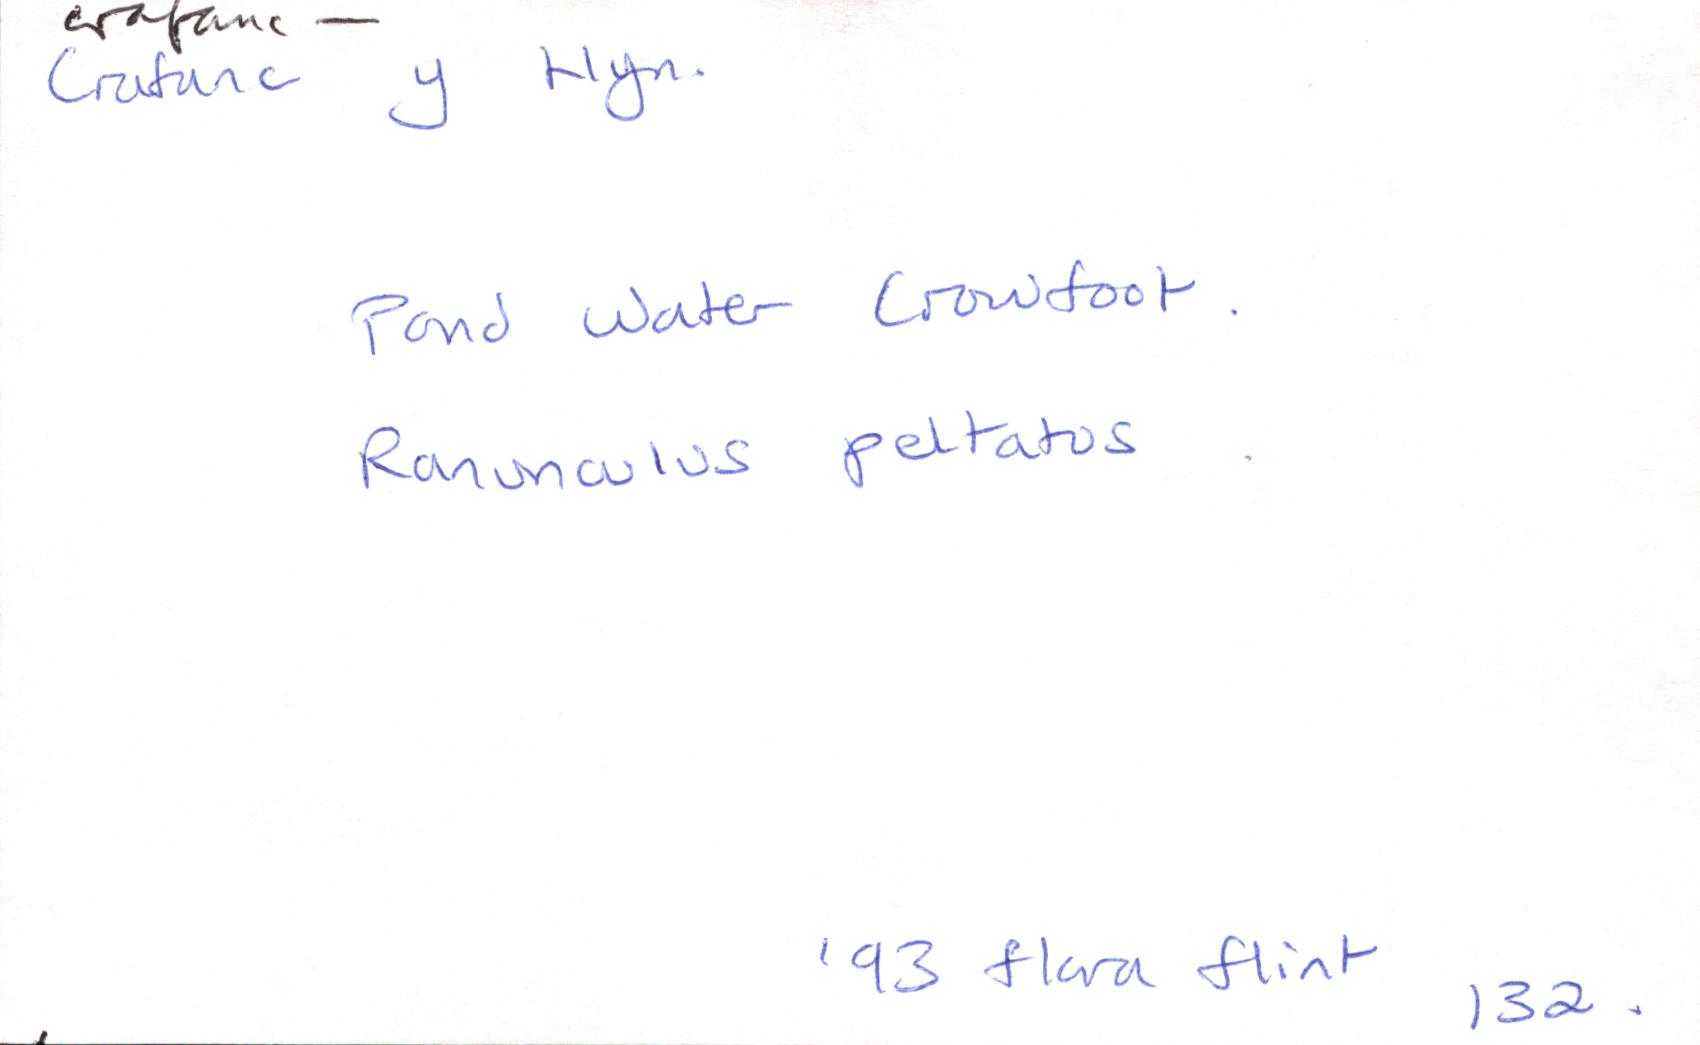 crafanc —
Crafanc y Llyn.
Pond Water Crowfoot.
Ranunculus peltatus.
'93 flora flint
132.